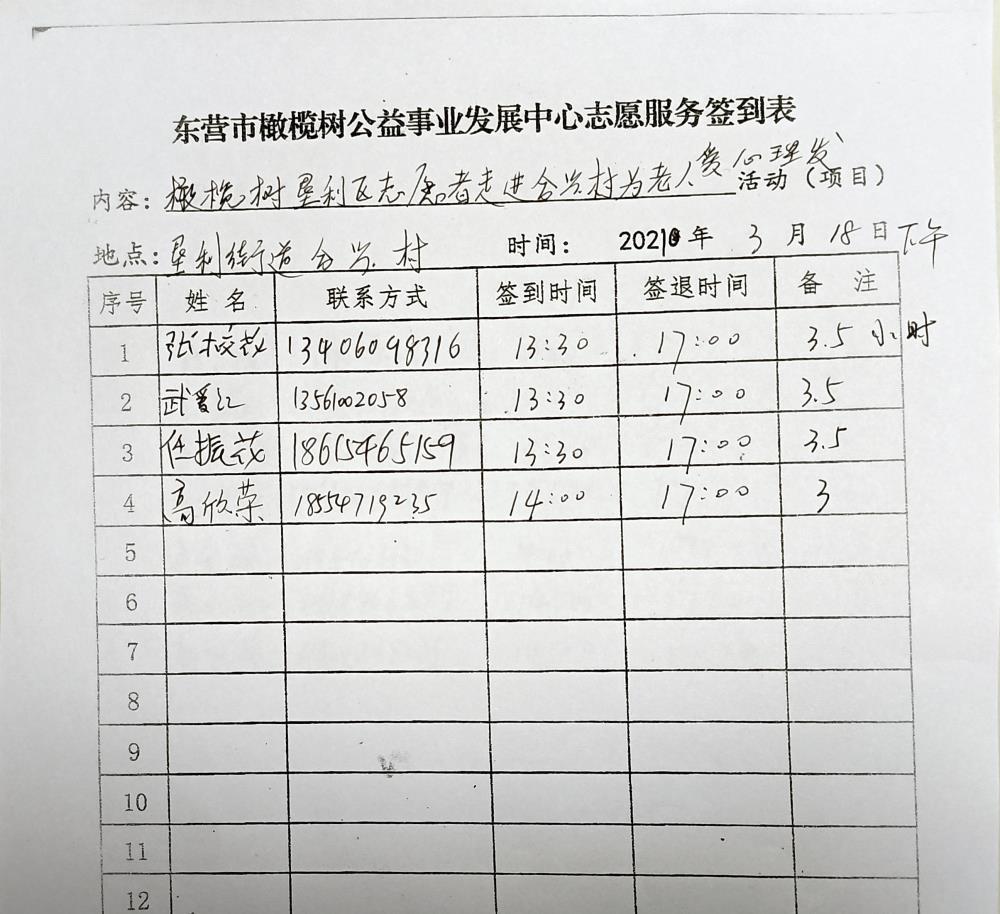 东营市橄榄树公益事业发展中心志愿服务签到表
内容：橄榄树垦利区志愿者走进合兴村为老人爱心理发活动（项目）
地点：垦利街道合兴村 时间：2021年3月18日下午
序号 姓名 联系方式 签到时间 签退时间 备注
1 张 13406098316 13:30 17:00 3.5小时
2 武爱江 13561002058 13:30 17:00 3.5
3 任振茂 18615465159 13:30 17:00 3.5
4 高欣荣 18554719235 14:00 17:00 3
5
6
7
8
9
10
11
12